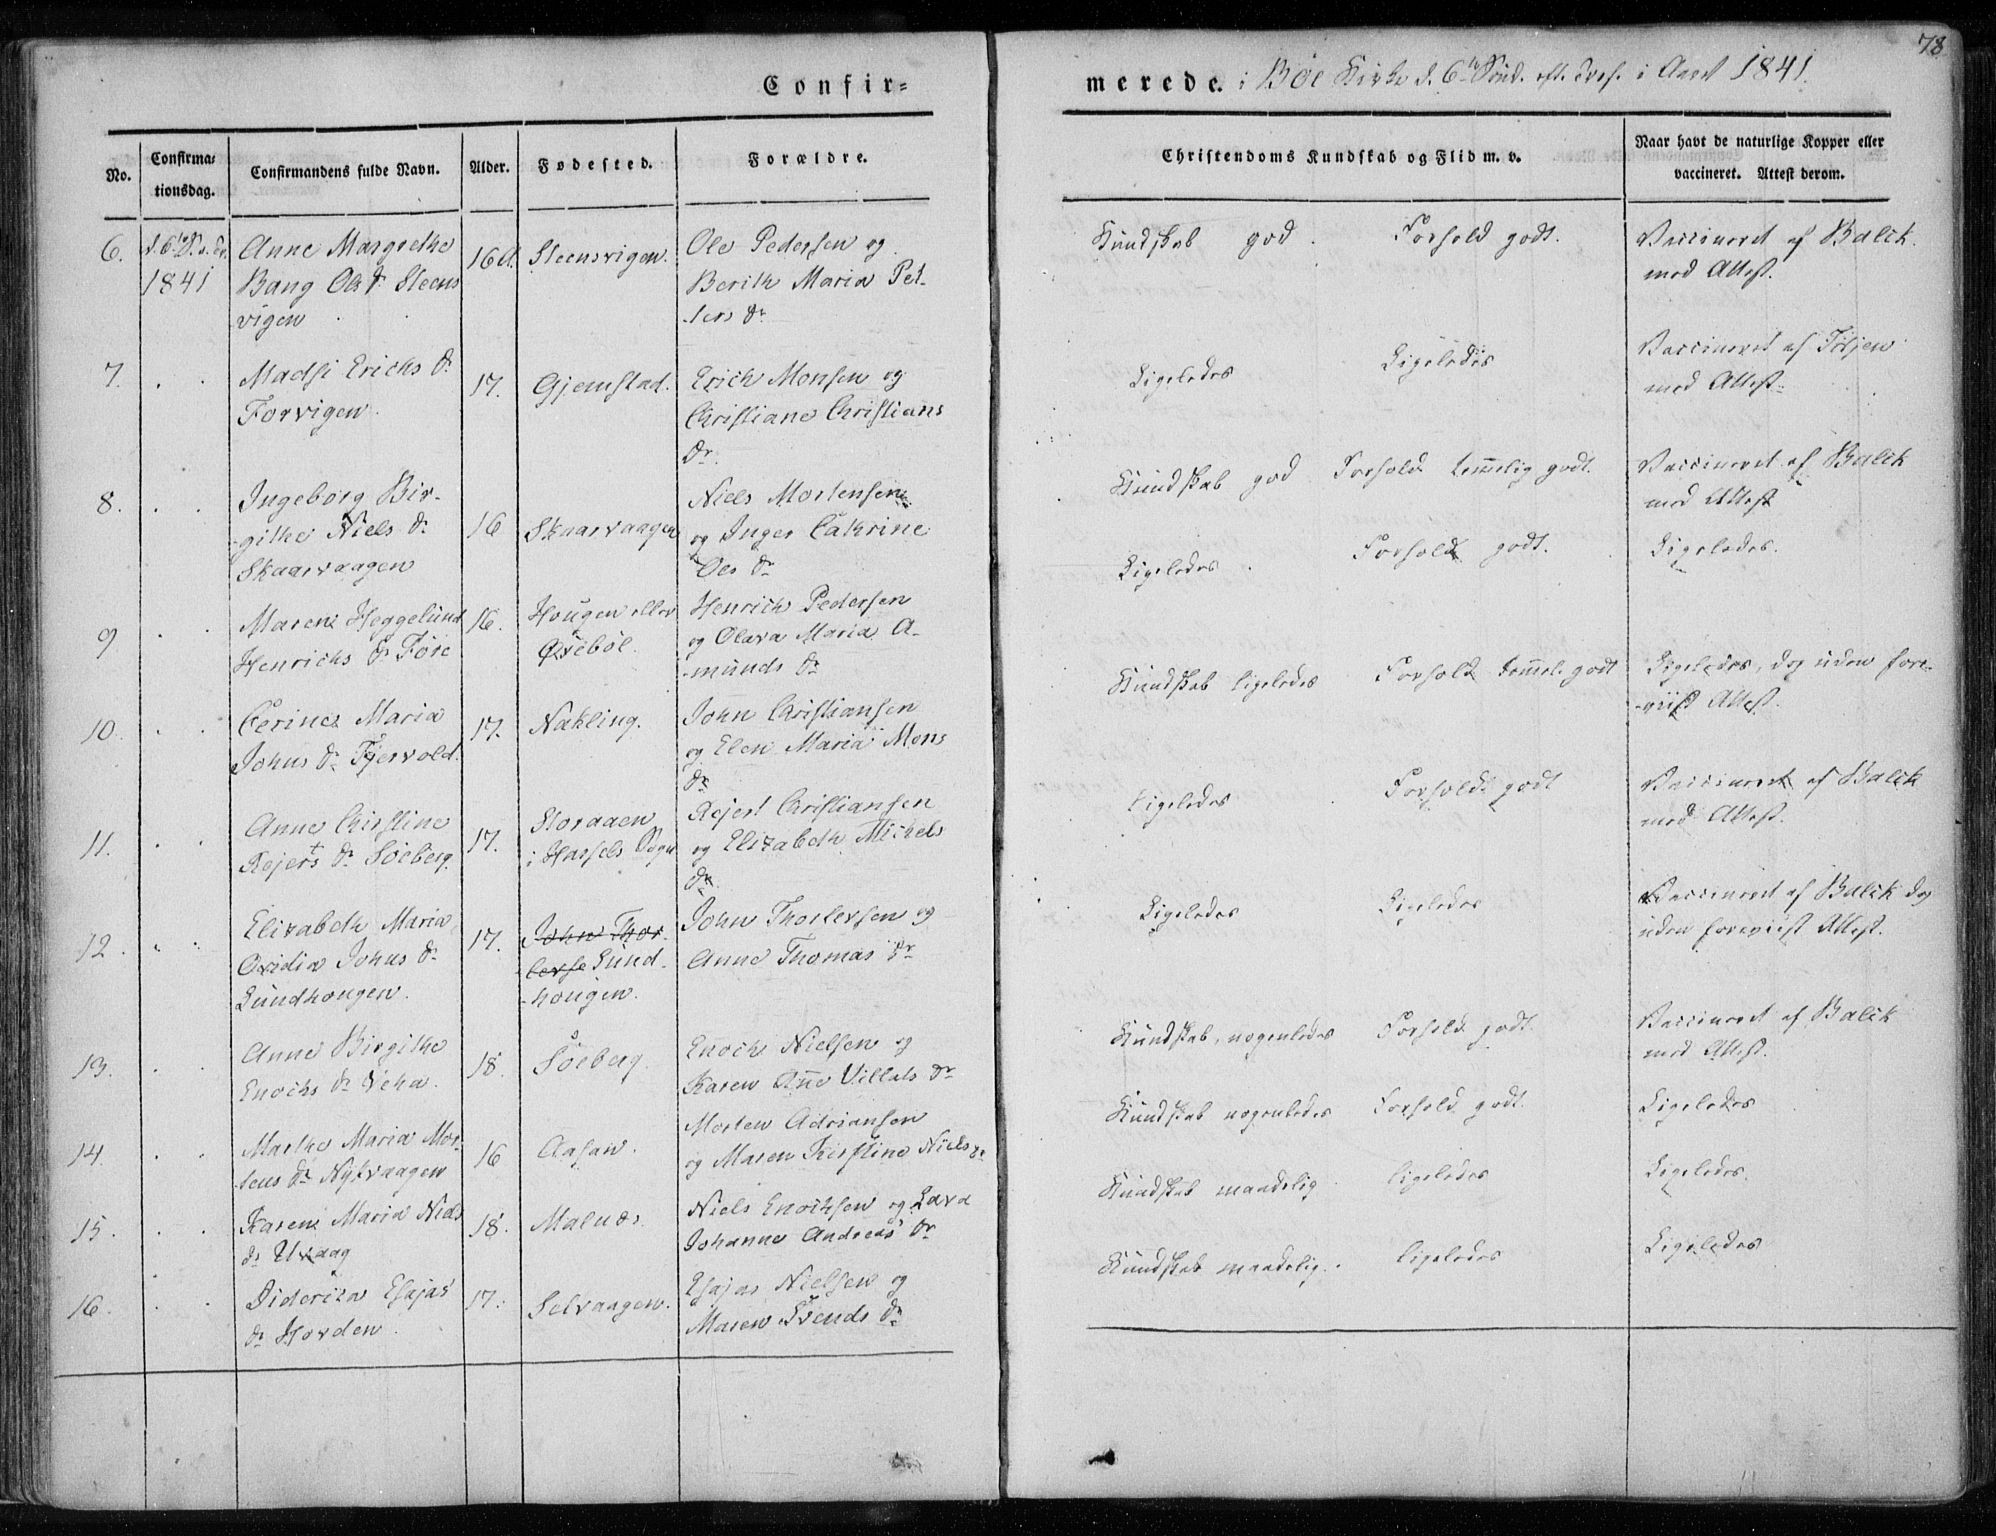 78
Confir=
merede. i Böe Kirke d. 6te Sönd. eft. Tref. i Aaret 1841.
No.
Confirma=
tionsdag.
Confirmandens fulde Navn.
Alder.
Fødested.
Forældre.
Christendoms Kundskab og Flid m. v.
Naar havt de naturlige Kopper eller
vaccineret. Attest derom.
6. 1841 Anne Margrethe
Bang Ols Dr Steens
vigen
16 Steensvigen.
Ole Pedersen og
Berith Maria Pet-
ters Dr
Kundskab god. Forhold godt.
Vaccineret af Balck
med Attest.
7. Madsi Erichs Dr
Forvigen
17. Gjemstad.
Erich Monsen og
Christiane Christians
Dr.
Ligeledes Ligeledes
Vaccineret af
med Attest.
8. Ingeborg Bir-
githe Niels Dr
Skaarvaagen
16 Skaarvaagen
Niels Mortensen
og Inger Cathrine
Oles Dr
Kundskab god Forhold temelig godt.
Vaccineret af Balck
med Attest
9 Maren Heggelund
Henrichs Dr Före
16. Hougen eller
Øvebøl.
Henrich Pedersen
og Olava Maria A-
munds Dr
Ligeledes. Forhold godt.
Ligeledes.
10. Cerine Maria
Johns Dr Fjervold.
17. Nakling.
John Christiansen
og Elen Maria Mons
Dr
Kundskab ligeledes Forhold temel. godt
Ligeledes, dog uden fore-
viist Attest.
11. Anne Christine
Rejerts Dr Söeberg.
17. Storaaen
i Hassels Sogn
Rejert Christiansen
og Elizabeth Michels
Dr
Ligeledes Forhold godt
Vaccineret af Balck
med Attest.
12. Elizabeth Maria
Ovidia Johns Dr
Sundhougen.
17. John Thor-
lerse Sund-
hougen.
John Thorlersen og
Anne Thomas Dr
Ligeledes Ligeledes
Vaccineret af Balck dog
uden foreviist Attest.
13. Anne Birgithe
Enochs Dr Veha.
18. Söeberg.
Enoch Nielsen og
Karen Ane Villats Dr
Kundskab, nogenledes Forhold godt
Vaccineret af Balck
med Attest.
14. Marthe Maria Mor-
tens Dr Nykvaagen
16 Aasan.
Morten Adriansen
og Maren Kirstine Niels Dr
Kundskab nogenledes Forhold godt.
Ligeledes
15. Karen Maria Niels
Dr Uvaag
18. Malnes.
Niels Enochsen og Lava
Johanne Andreas Dr
Kundskab maadelig ligeledes
Ligeledes.
16. Dideriza Esajas
Dr Hovden
17. Selvaagen.
Esajas Nielsen og
Maren Svends Dr
Kundskab maadelig. ligeledes
Ligeledes